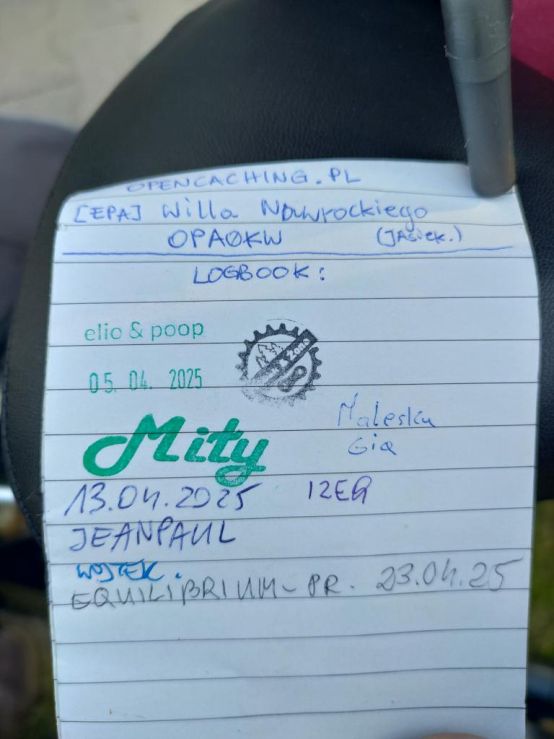 OPENCACHING.PL
[EPA] Willa Nawrockiego
OPA0KW (JASIEK.)
LOGBOOK:
elio & poop
05. 04. 2025
Mity
Gia
13.04.2025 IZEQ
JEANPAUL
WOJTEK.
EQUILIBRIUM-PR. 23.04.25